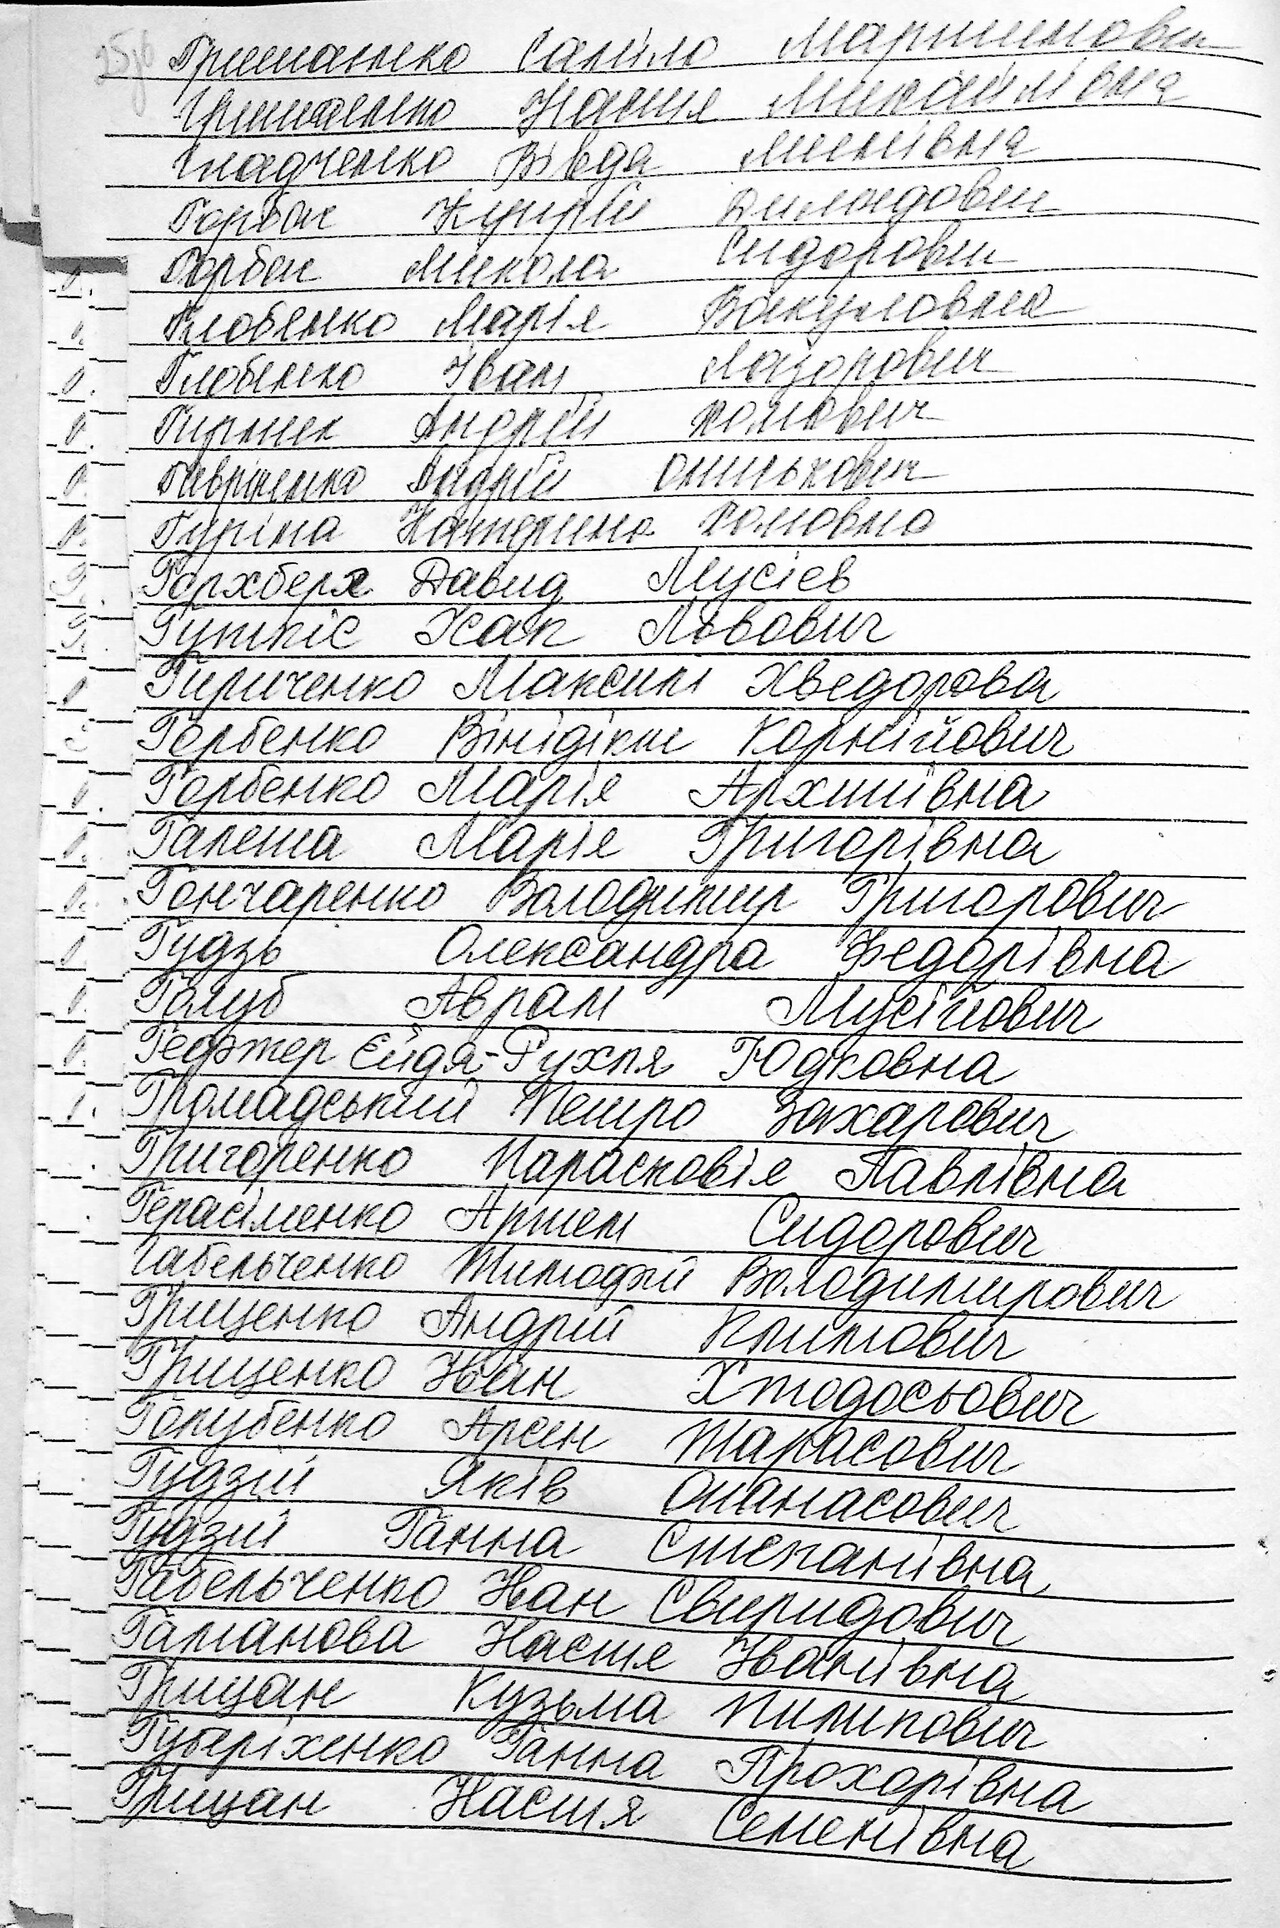 Гришаненко Саміло Мартинович
Грищенко Настя Михайлівна
Гладченко Вівдя Минівна
Горбач Купрій Демидович
Горбач Микола Сидорович
Глобенко Марія Вакуловна
Глобенко Іван Лазорович
Гирник Андрій Хомович
Гавріленко Андрій Онисьпович
Гуріна Катерина Хомовна
Горхберх Давид Мусієв
Гуткіс Ісак Львович
Гириченко Максим Хведорова
Горбенко Вінідікт Корнійович
Горбенко Марія Архипівна
Галета Марія Григорівна
Гончаренко Володимир Григорович
Гудзь Олександра Федорівна
Голуб Аврам Мусійович
Геормер Єйдя-Рухля Юдковна
Громадський Петро Захарович
Григоренко Парасковія Павлівна
Герасіменко Артем Сидорович
Габельченко Тимофій Володимирович
Гриценко Андрій Климович
Гриценко Іван Хтодосьович
Голубенко Арсен Тарасович
Гудзій Яків Опанасович
Гудзій Ганна Степанівна
Габельченко Іван Свиридович
Гаманова Настя Іванівна
Грицан Кузьма Пилипович
Губеріхенко Ганна Прохорівна
Грицан Настя Семенівна